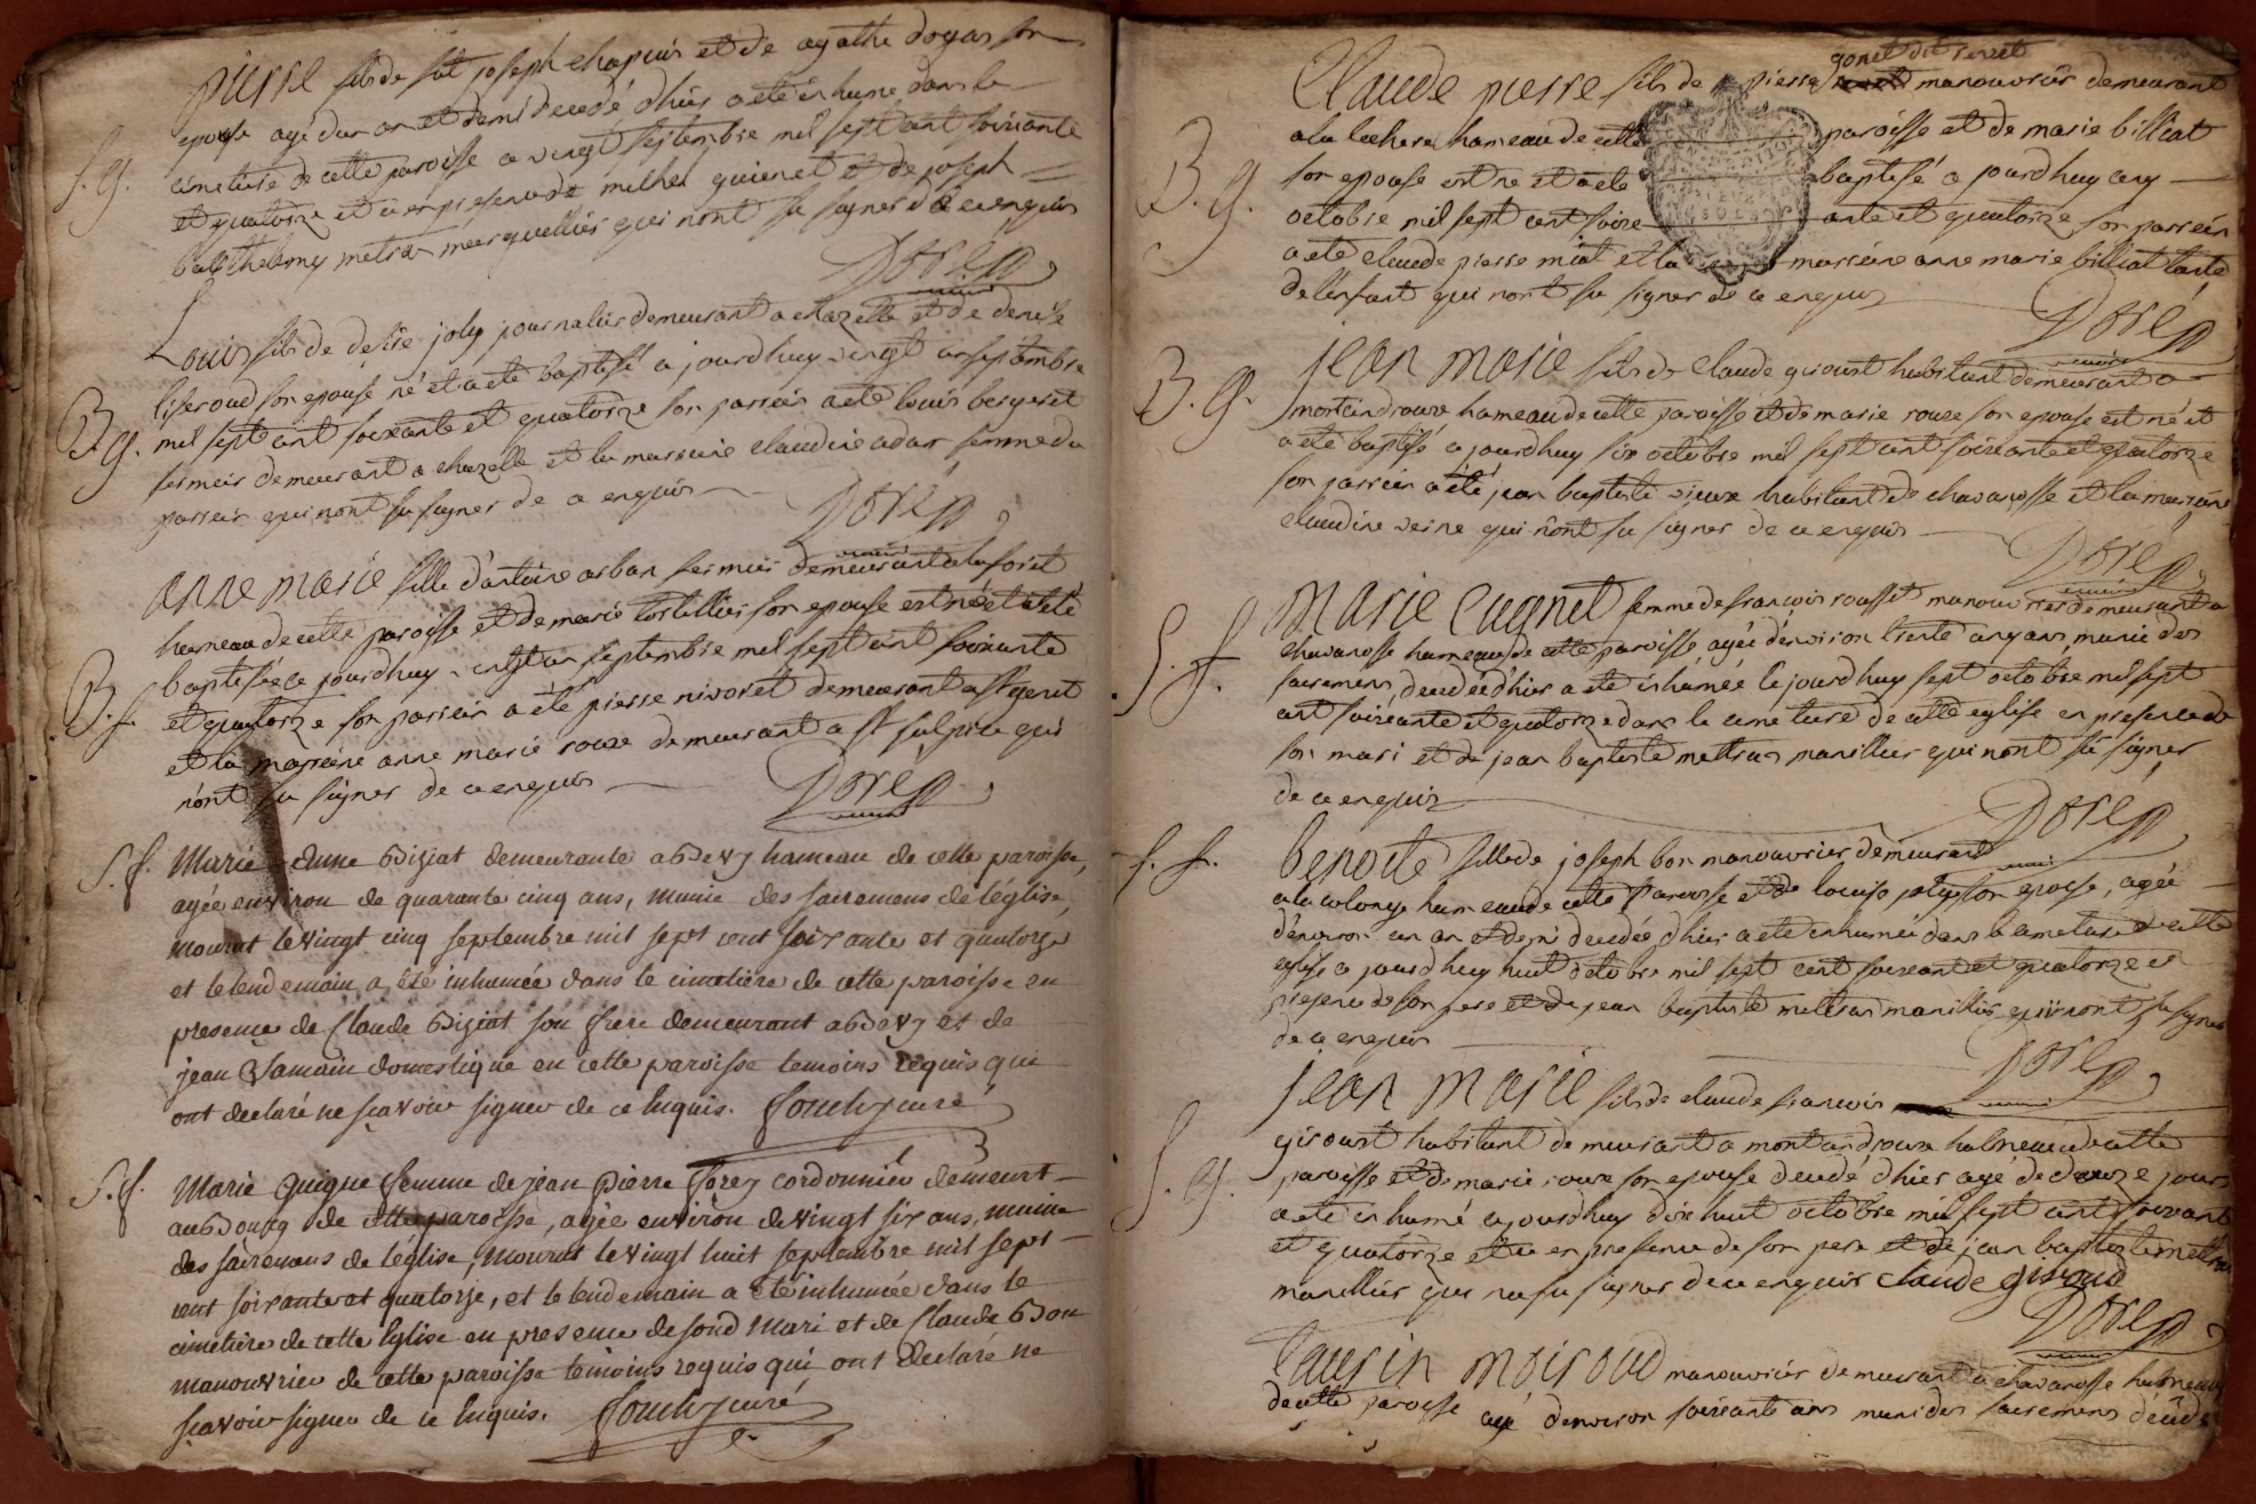 pierre fils de fût joseph chapuis et de agathe dogas son
epouse agé dun an et demi decedé d'hier a ete inhumé dans le
S. g. cimetiere de cette paroisse ce vingt septembre mil sept cent soixante
et quatorze et ce en presence de michel guienet et de joseph
barthelemy metras marguillier qui n'ont su signer de ce enquis
Doré
Louis fils de desiré joly journalier demeurant a chazelle et de denise
liseroud son epouse né et a ete baptisé a jourdhuy vingt un septembre
B. g. mil sept cent soixante et quatorze son parrain a ete louis bergeret
fermier demeurant a chazelle et la marraine claudine adar femme du
parrain qui n'ont su signer de ce enquis
Doré
anne marie fille d'antoine arban fermier demeurant a la foret
hameau de cette paroisse et de marie tortillier son epouse est née et a ete
B. f. baptisée ce jourdhuy vingt un septembre mil sept cent soixante
et quatorze son parrain a été pierre nivoret demeurant a st genet
et la marraine anne marie roux demeurant a st sulpice qui
n'ont su signer de ce enquis
Doré
S. f. Marie Anne Biziat demeurante a Bevy hameau de cette paroisse,
agée environ de quarante cinq ans, munie des sacremens de l'église,
mourut le vingt cinq septembre mil sept cent soixante et quatorze
et le lendemain a été inhumée dans le cimetiere de cette paroisse en
presence de Claude Biziat son frere demeurant a Bevy et de
jean Samain domestique en cette paroisse temoins requis qui
ont declaré ne sçavoir signer de ce Enquis. curé
S. f. Marie Guigue femme de jean Pierre Forey cordonnier demeurt
au Bourg de cette paroisse, agée environ de vingt six ans, munie
des sacremens de l'église, mourut le vingt huit septembre mil sept
cent soixante et quatorze, et le lendemain a été inhumée dans le
cimetiere de cette Eglise en presence de son d Mari et de Claude Bon
manouvrier de cette paroisse temoins requis qui ont declaré ne
sçavoir signer de ce Enquis. curé
gonet dit
Claude pierre fils de pierre manouvrier demeurant
a la lechere hameau de cette paroisse et de marie billiat
B. g. son epouse est né et a ete baptisé a jourdhuy cinq
octobre mil sept cent soixante et quatorze son parrain
a ete claude pierre miat et la marraine anne marie billiat tante
de l'enfant qui n'ont su signer de ce enquis
Doré
B. g. jean marie fils de Claude giroust habitant demeurant a
montaindroux hameau de cette paroisse et de marie roux son epouse est né et
a ete baptisé a jourdhuy six octobre mil sept cent soixante et quatorze
son parrain a été jean baptiste vieux habitant de chavanosse et la marraine
claudine veine qui n'ont su signer de ce enquis
Doré
Marie Cugnet femme de françois rousset manouvrier demeurant a
S. f. chavanosse hameau de cette paroisse agée d'environ trente cinq ans, munie des
sacremens, decedée d'hier a ete inhumée le jourdhuy sept octobre mil sept
cent soixante et quatorze dans le cimetiere de cette eglise en presence de
son mari et de jean baptiste mettras manillier qui n'ont su signer
de ce enquis
Doré
S. f. benoite fille de joseph bon manouvrier demeurant
a la colonge hameau de cette Paroisse et de louise joly son epouse, agée
d'environ un an et demi decedée d'hier a ete inhumée dans le cimetiere de cette
eglise ce jourdhuy huit octobre mil sept cent soixante et quatorze en
presence de son pere et de jean baptiste mettras manillier qui n'ont su signer
de ce enquis
Doré
jean marie fils de claude françois
giroust habitant demeurant a montaindroux hameau de cette
S. g. paroisse et de marie roux son epouse decedé d'hier agé de douze jours
a ete inhumé ce jourdhuy dix huit octobre mil sept cent soixante
et quatorze et ce en presence de son pere et de jean baptiste mettras
manillier qui n'a su signer de ce enquis claude giroud
Doré
Taurin Moiroud manouvrier demeurant a chavanosse hameau
de cette paroisse agé d'environ soixante ans muni des sacremens decedé